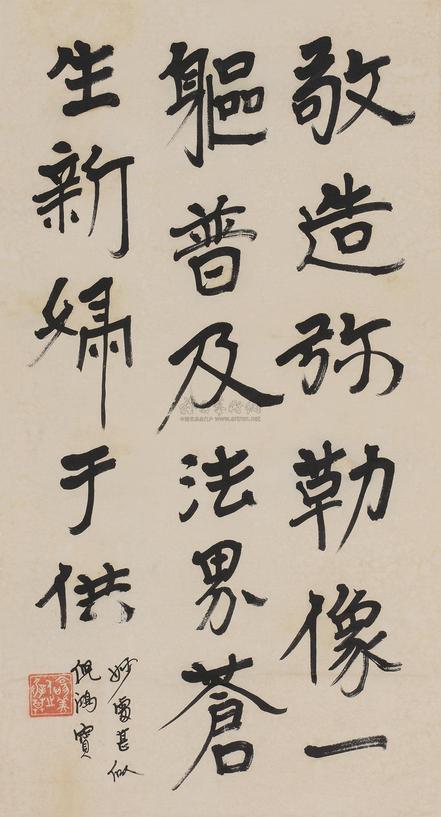 敬造弥勒像一
軀普及法界蒼
生新婦于供
妙處甚似
倪鴻寶
www.artron.net